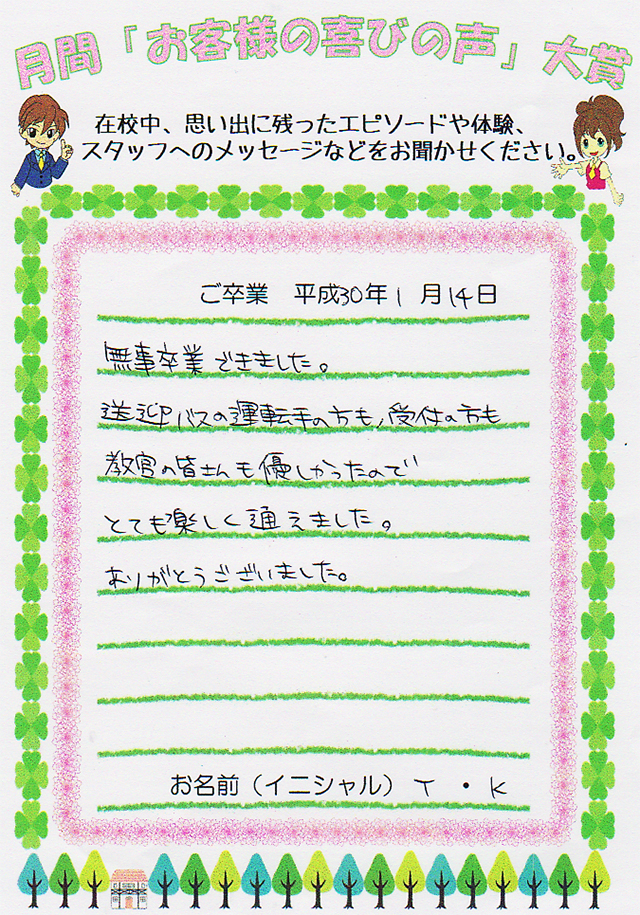 月間「お客様の喜びの声」大賞
在校中、思い出に残ったエピソードや体験、
スタッフへのメッセージなどをお聞かせください。
ご卒業 平成30年1月14日
無事卒業できました。
送迎バスの運転手の方も、受付の方も
教官の皆さんも優しかったので
とても楽しく通えました。
ありがとうございました。
お名前（イニシャル） T ・ K